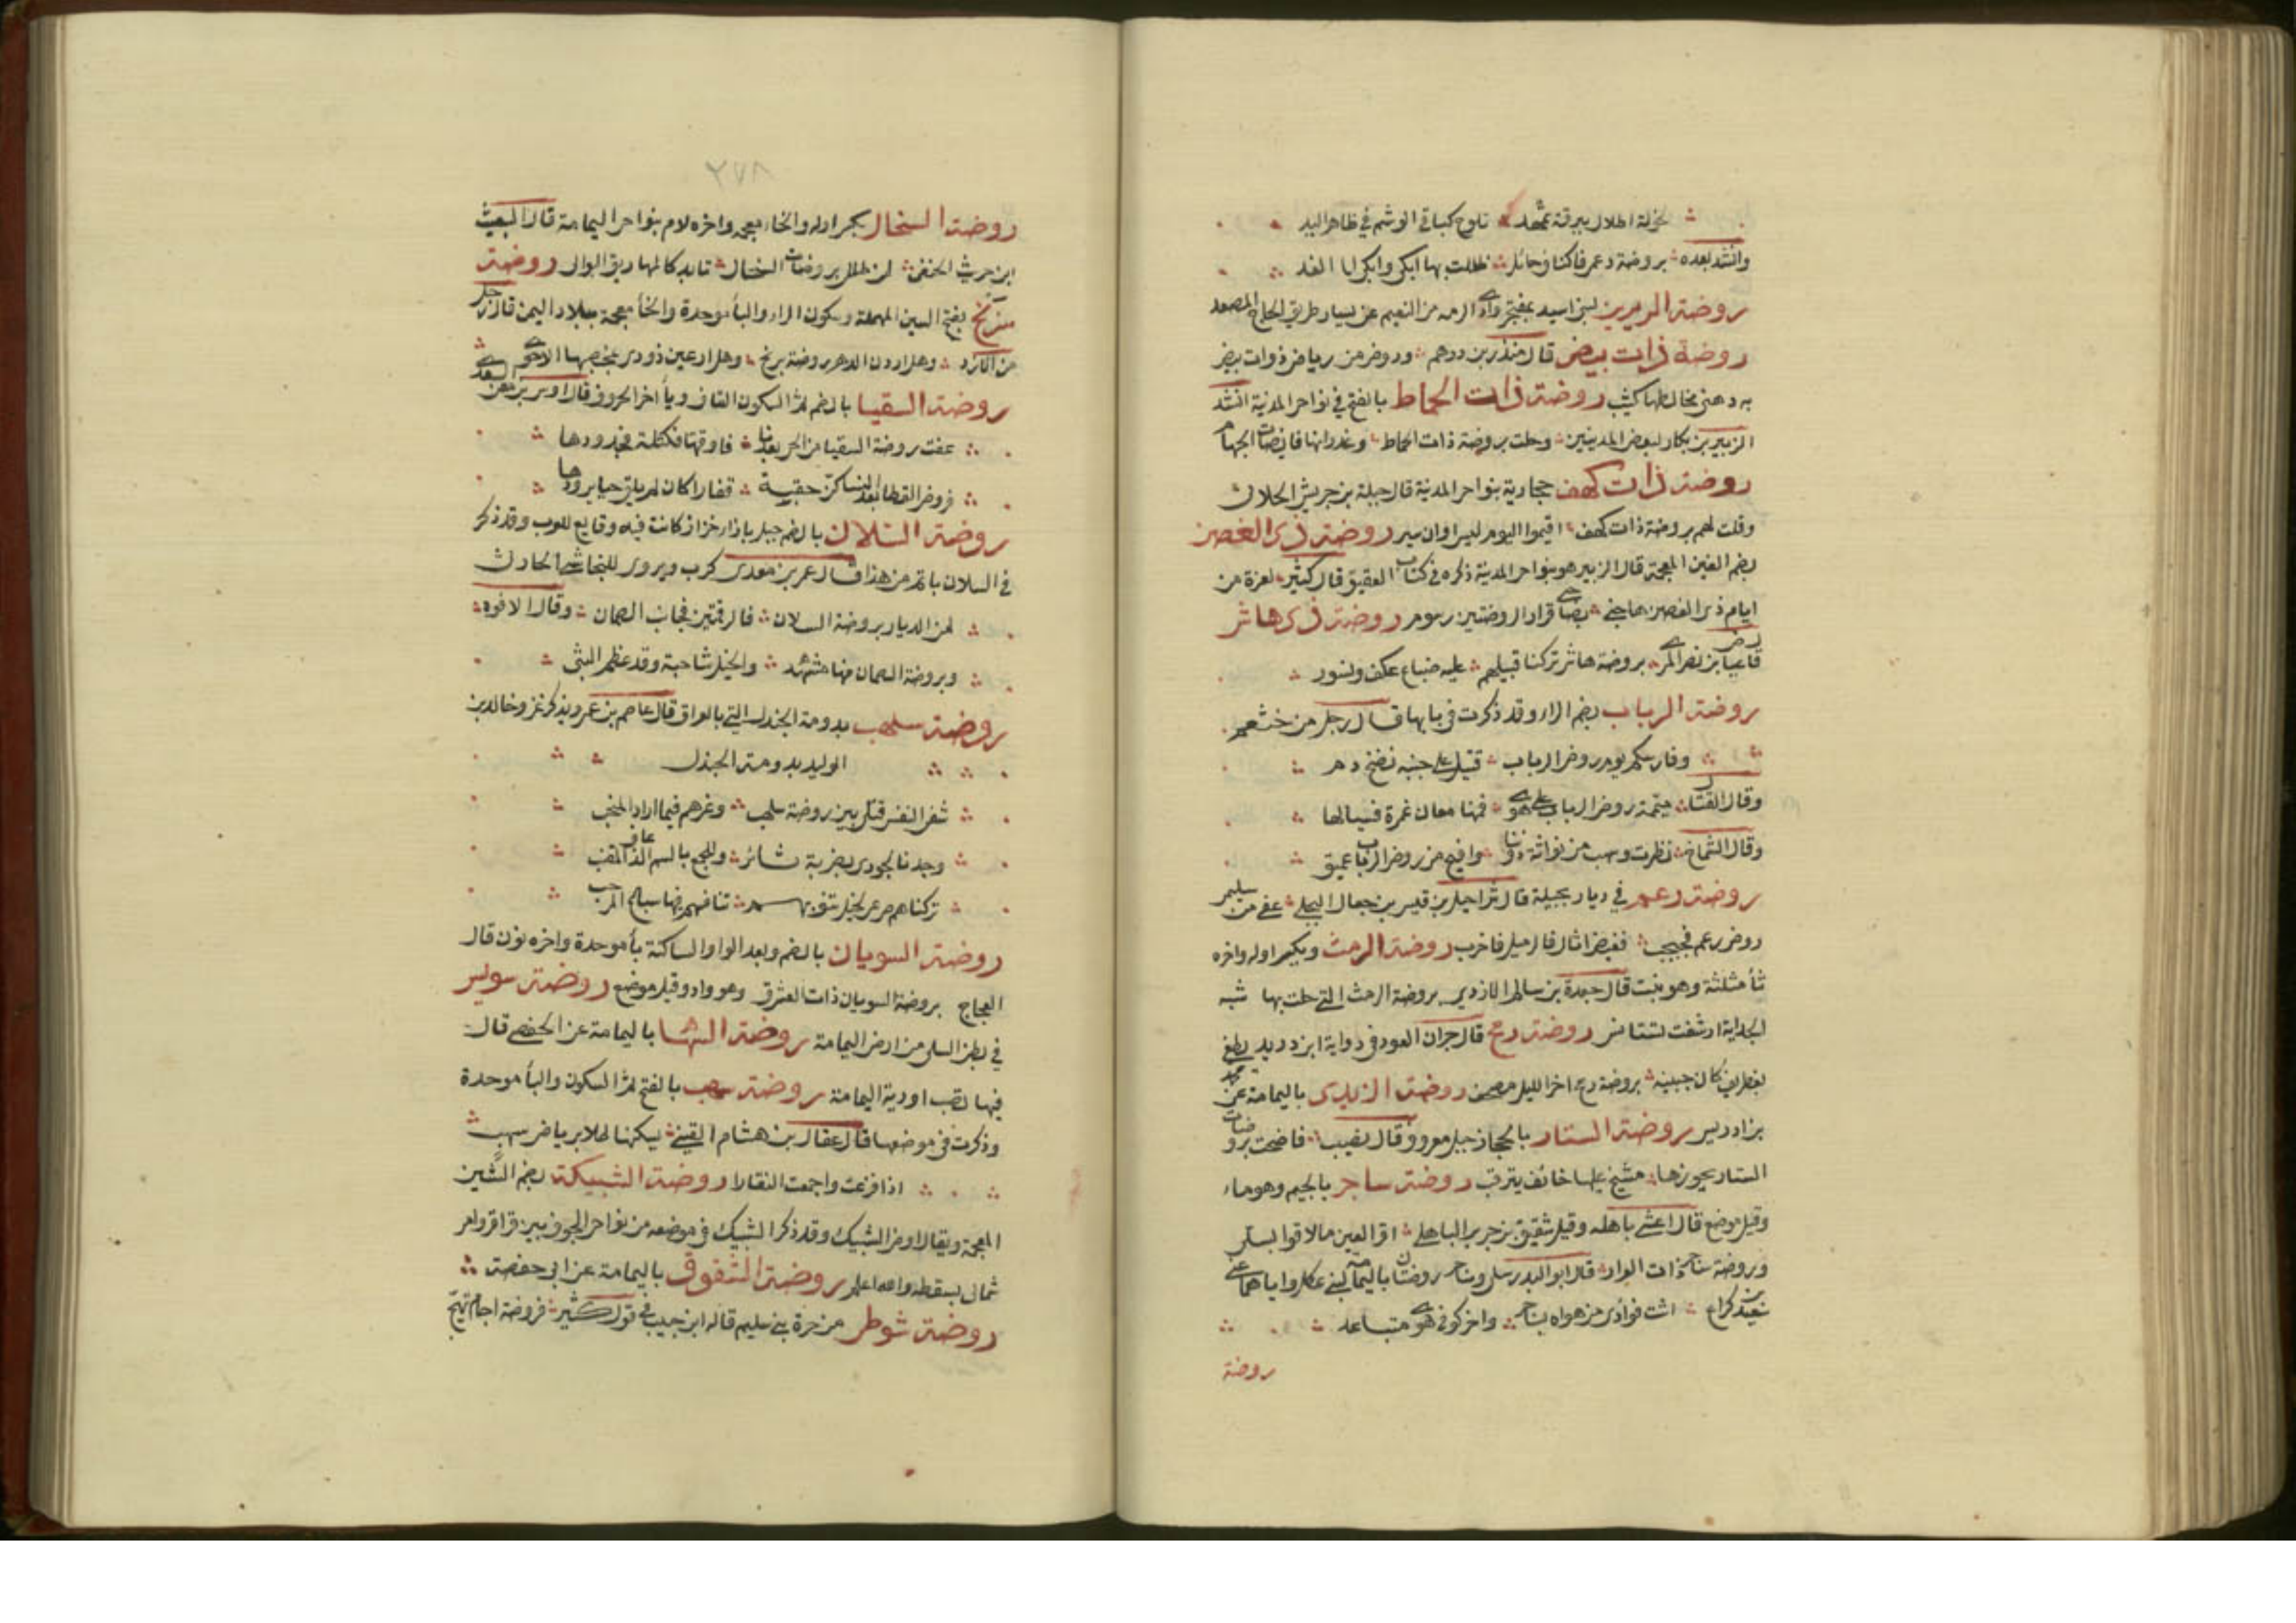 لخولة اطلال ببرقة ثهمد تلوح كباقي الوشم في ظاهر اليد
وانشد بعده بروضة دعمي فاكناف حائل ظللت بها ابكي وابكي الى الغد
روضة لبني اسيد بمفجر وادي الرمه من التنعيم عن يسار طريق الحاج المصعد
روضة ذات بيض قال منذر بن درهم وروض من رياض ذوات بيض
به دهنى مخالطها كثيب روضة ذات الحماط بالفتح في نواحي المدينة انشد
الزبير بن بكار لبعض المدينين وحلت بروضة ذات الحماط وغدرانها فائضات الجهام
روضة ذات كهف حجازية بنواحي المدينة قال جبلة بن جريش الحلابي
وقلت لهم بروضة ذات كهف اقيموا اليوم ليس اوان سير روضة ذي الغصن
بضم الغين المعجمة قال الزبير هو بنواحي المدينة ذكره في كتاب العقيق قال كثير لعزة من
ايام ذي الغصن هاجني بضاحي قرار الروضتين رسوم روضة ذي هاش
بروضة هاش تركنا قتيلهم عليه ضباع عكف ونسور
روضة الرباب بضم الراء وقد ذكرت في بابها قال رجل من خثعم
وفارسكم يوم روض الرباب قتيل على جنبه نضخ دم
وقال القتال ميممة روض الرباب على هوى فمنها مغان غمرة فسيالها
وقال الشماخ نظرت وسهب من بوانة دوننا وافيح من روض الرباب عميق
روضة رعم في ديار بجيلة قال شراحيل بن قيس بن جعال البجلي عفى من سليمى
روض رعم فجبجب روضة الرمث وبكسر اوله واخره
ثاء مثلثة وهو نبت قال جعدة بن سالم الازدي بروضة الرمث التي حلت بها شبه
الجداية ارشفت لتستانس روضة رمح قال جران العود في رواية ابن دريد يطفن
بغطريف كان جبينه بروضة رمح اخر الليل مصحف روضة الزيدي باليمامة عن محمد
بن ادريس روضة الستار بالحجاز جبل معروف وقال نصيب فاضحت بروضات
الستار يحوزها مشيح عليها خائف يترقب روضة ساجر بالجيم وهو ماء
وقيل موضع قال اعشى باهله وقيل شقيق بن جرير الباهلي اقر العين ما لاقوا بسلى
وروضة ساجر ذات العرار قال ابو الندى سلى وساجر روضتان باليمامة لبني عكل واياهما عنى
سويد كراع اشت فوادي من هواه بساجر واخر كوفي هوى متباعد
روضة
٢٧٨
روضة السخال بكسر اوله والخاء معجمة واخره لام بنواحي اليمامة قال البعيث
ابن حريث الحنفي لمن طلل بروضات السخال تابد كالمهاريق البوالي روضة
سربخ بفتح السين المهملة وسكون الراء والباء موحدة والخاء معجمة ببلاد اليمن قال رجل
من الازد وهل اردن الدهر روضة سربخ وهل ارعين ذودي
روضة السقيا بالضم ثم السكون القاف وياء اخر الحروف قال اوس بن مغرا السعدي
عفت روضة السقيا من الحي بعدنا فاوقتها فكتلة فجدودها
فروض القطا بعد التساكن حقبة قفارا كان لم تلق حيا يرودها
روضة السلان بالضم جبل بازاء خزاز كانت فيه وقايع للعرب وقد ذكر
في السلان باتم من هذا قال عمر بن معدي كرب ويروى للنجاشي الحارثي
لمن الديار بروضة السلان فالرقمتين فجانب الصمان وقال الافوه
وبروضة السلان منها مشهد والخيل شاحبة وقد عظم الثبى
روضة سلهب بدومة الجندل التي بالعراق قال عاصم بن عمرو يذكر غزو خالد بن
الوليد بدومة الجندل
شفى النفس قتلى بين روضة سلهب وغرهم فيما اراد المنجب
وجدنا لجودي بضربة ثائر وللجمع بالسم الذعاف المقشب
تركناهم صرعى لخيل تنوبهم تنافسهم فيها سباع المرحب
روضة السوبان بالضم وبعد الواو الساكنة باء موحدة واخره نون قال
العجاج بروضة السوبان ذات العشرق وهو واد وقيل موضع روضة سويس
في بطن السلى من ارض اليمامة روضة السها باليمامة عن الحفصي قال
فيها تصب اودية اليمامة روضة سهب بالفتح ثم السكون والباء موحدة
وذكرت في موضعها قال عقال بن هشام القيني يسكنها طلا برياض سهب
اذا فزعت واجمعت النقارا روضة الشبيكة بضم الشين
المعجمة ويقال روض الشبيك وقد ذكر الشبيك في موضعه من نواحي الجوف بين قراقر وامر
شمالي بسيطة والله اعلم روضة الشقوق باليمامة عن ابي حفصة
روضة شوطى من حرة بني سليم قاله ابن حبيب في قول كثير فروضة اجام تهيج